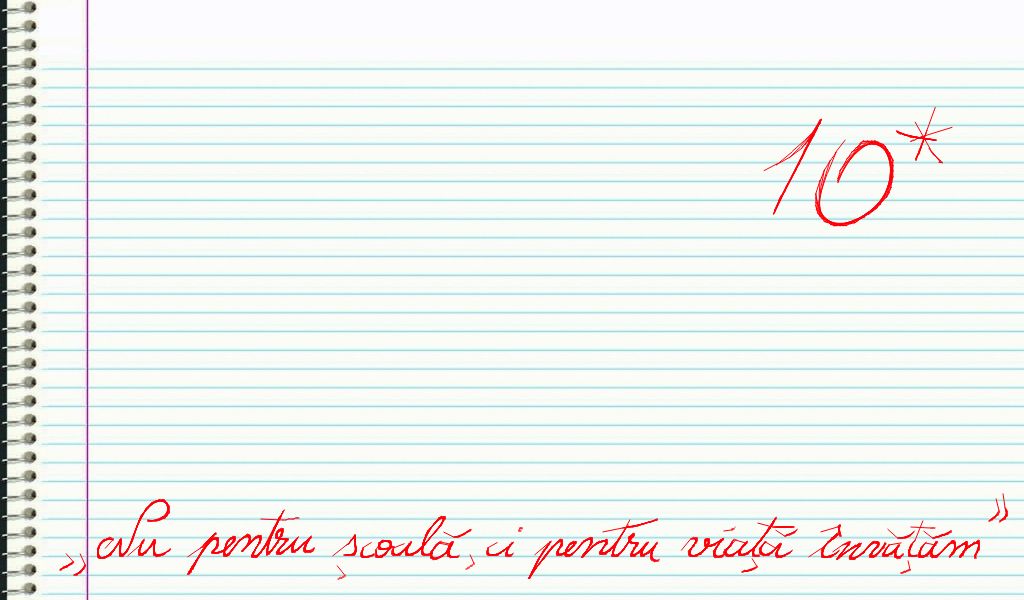 10*
„Nu pentru școală, ci pentru viață învățăm”